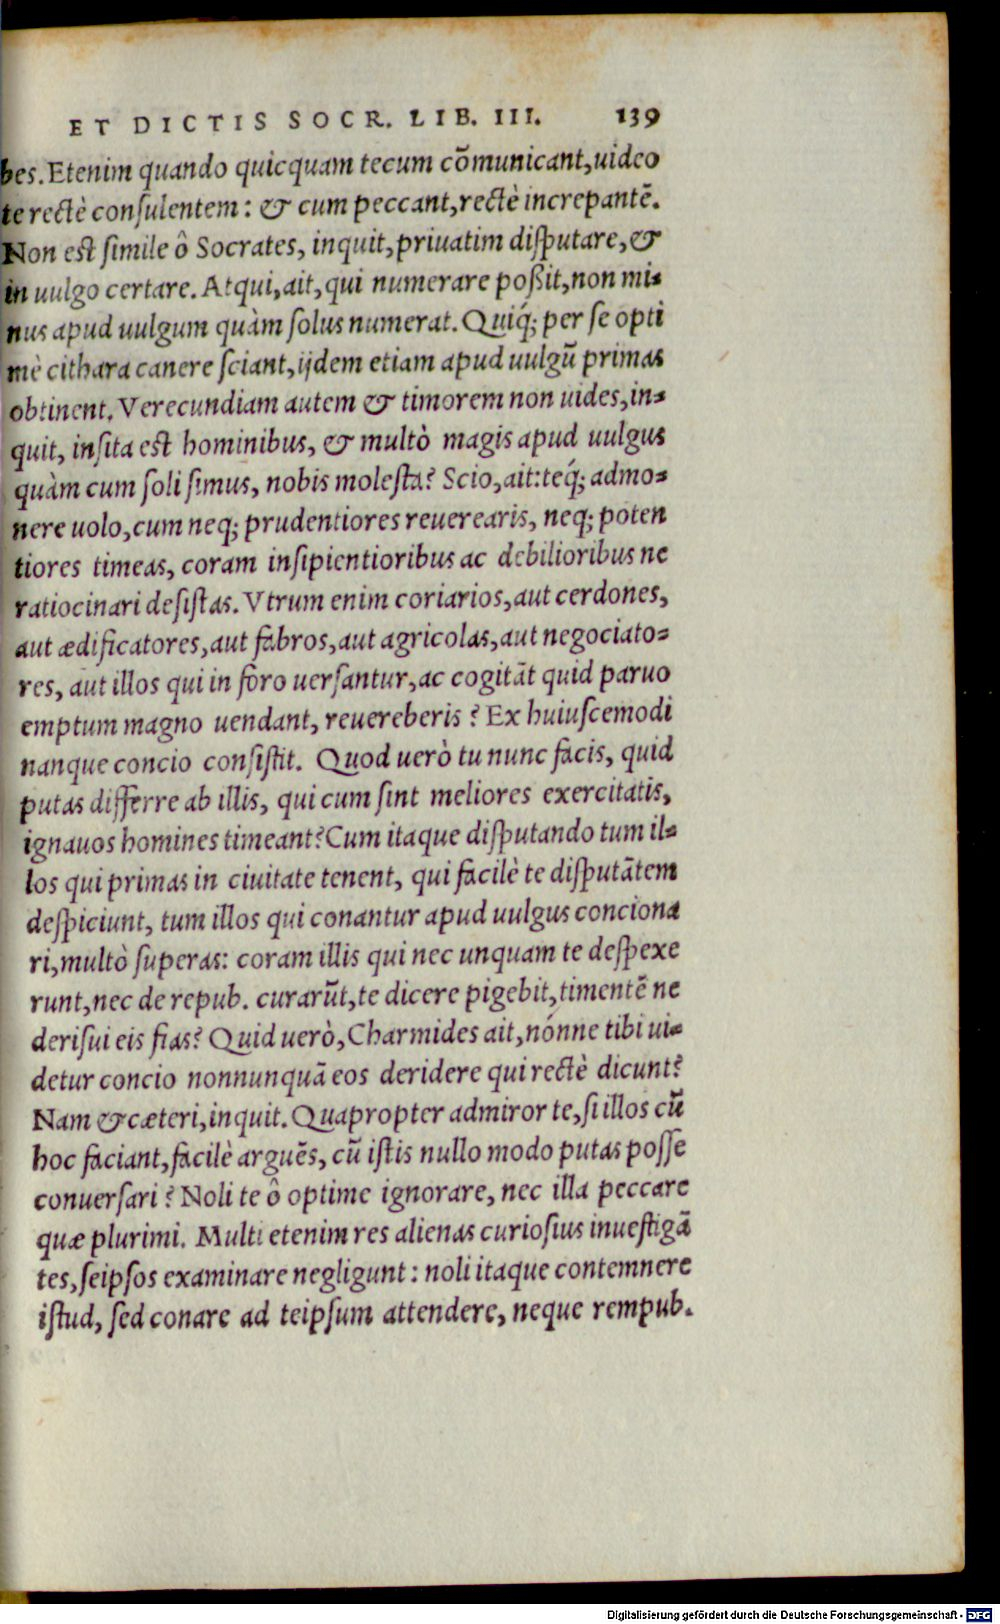 ET DICTIS SOCR. LIB. III. 139
bes. Etenim quando quicquam tecum cōmunicant, uideo
te rectè conſulentem: & cum peccant, rectè increpantē.
Non est ſimile ô Socrates, inquit, priuatim diſputare, &
in uulgo certare. Atqui, ait, qui numerare poßit, non mi-
nus apud uulgum quàm ſolus numerat. Quiq́; per ſe opti
mè cithara canere ſciant, ijdem etiam apud uulgū primas
obtinent. Verecundiam autem & timorem non uides, in-
quit, inſita est hominibus, & multò magis apud uulgus
quàm cum ſoli ſimus, nobis moleſta? Scio, ait: teq́; admo-
nere uolo, cum neq; prudentiores reuerearis, neq; poten
tiores timeas, coram inſipientioribus ac debilioribus ne
ratiocinari deſiſtas. Vtrum enim coriarios, aut cerdones,
aut ædificatores, aut fabros, aut agricolas, aut negociato-
res, aut illos qui in foro uerſantur, ac cogitāt quid paruo
emptum magno uendant, reuereberis? Ex huiuſcemodi
nanque concio conſiſtit. Quod uerò tu nunc facis, quid
putas differre ab illis, qui cum ſint meliores exercitatis,
ignauos homines timeant? Cum itaque diſputando tum il-
los qui primas in ciuitate tenent, qui facilè te diſputātem
deſpiciunt, tum illos qui conantur apud uulgus conciona
ri, multò ſuperas: coram illis qui nec unquam te deſpexe
runt, nec de repub. curarūt, te dicere pigebit, timentē ne
deriſui eis fias? Quid uerò, Charmides ait, nónne tibi ui-
detur concio nonnunquā eos deridere qui rectè dicunt?
Nam & cæteri, inquit. Quapropter admiror te, ſi illos cū
hoc faciant, facilè arguēs, cū iſtis nullo modo putas poſſe
conuerſari? Noli te ô optime ignorare, nec illa peccare
quæ plurimi. Multi etenim res alienas curioſius inueſtigā
tes, ſeipſos examinare negligunt: noli itaque contemnere
iſtud, ſed conare ad teipſum attendere, neque rempub.
Digitalisierung gefördert durch die Deutsche Forschungsgemeinschaft - DFG